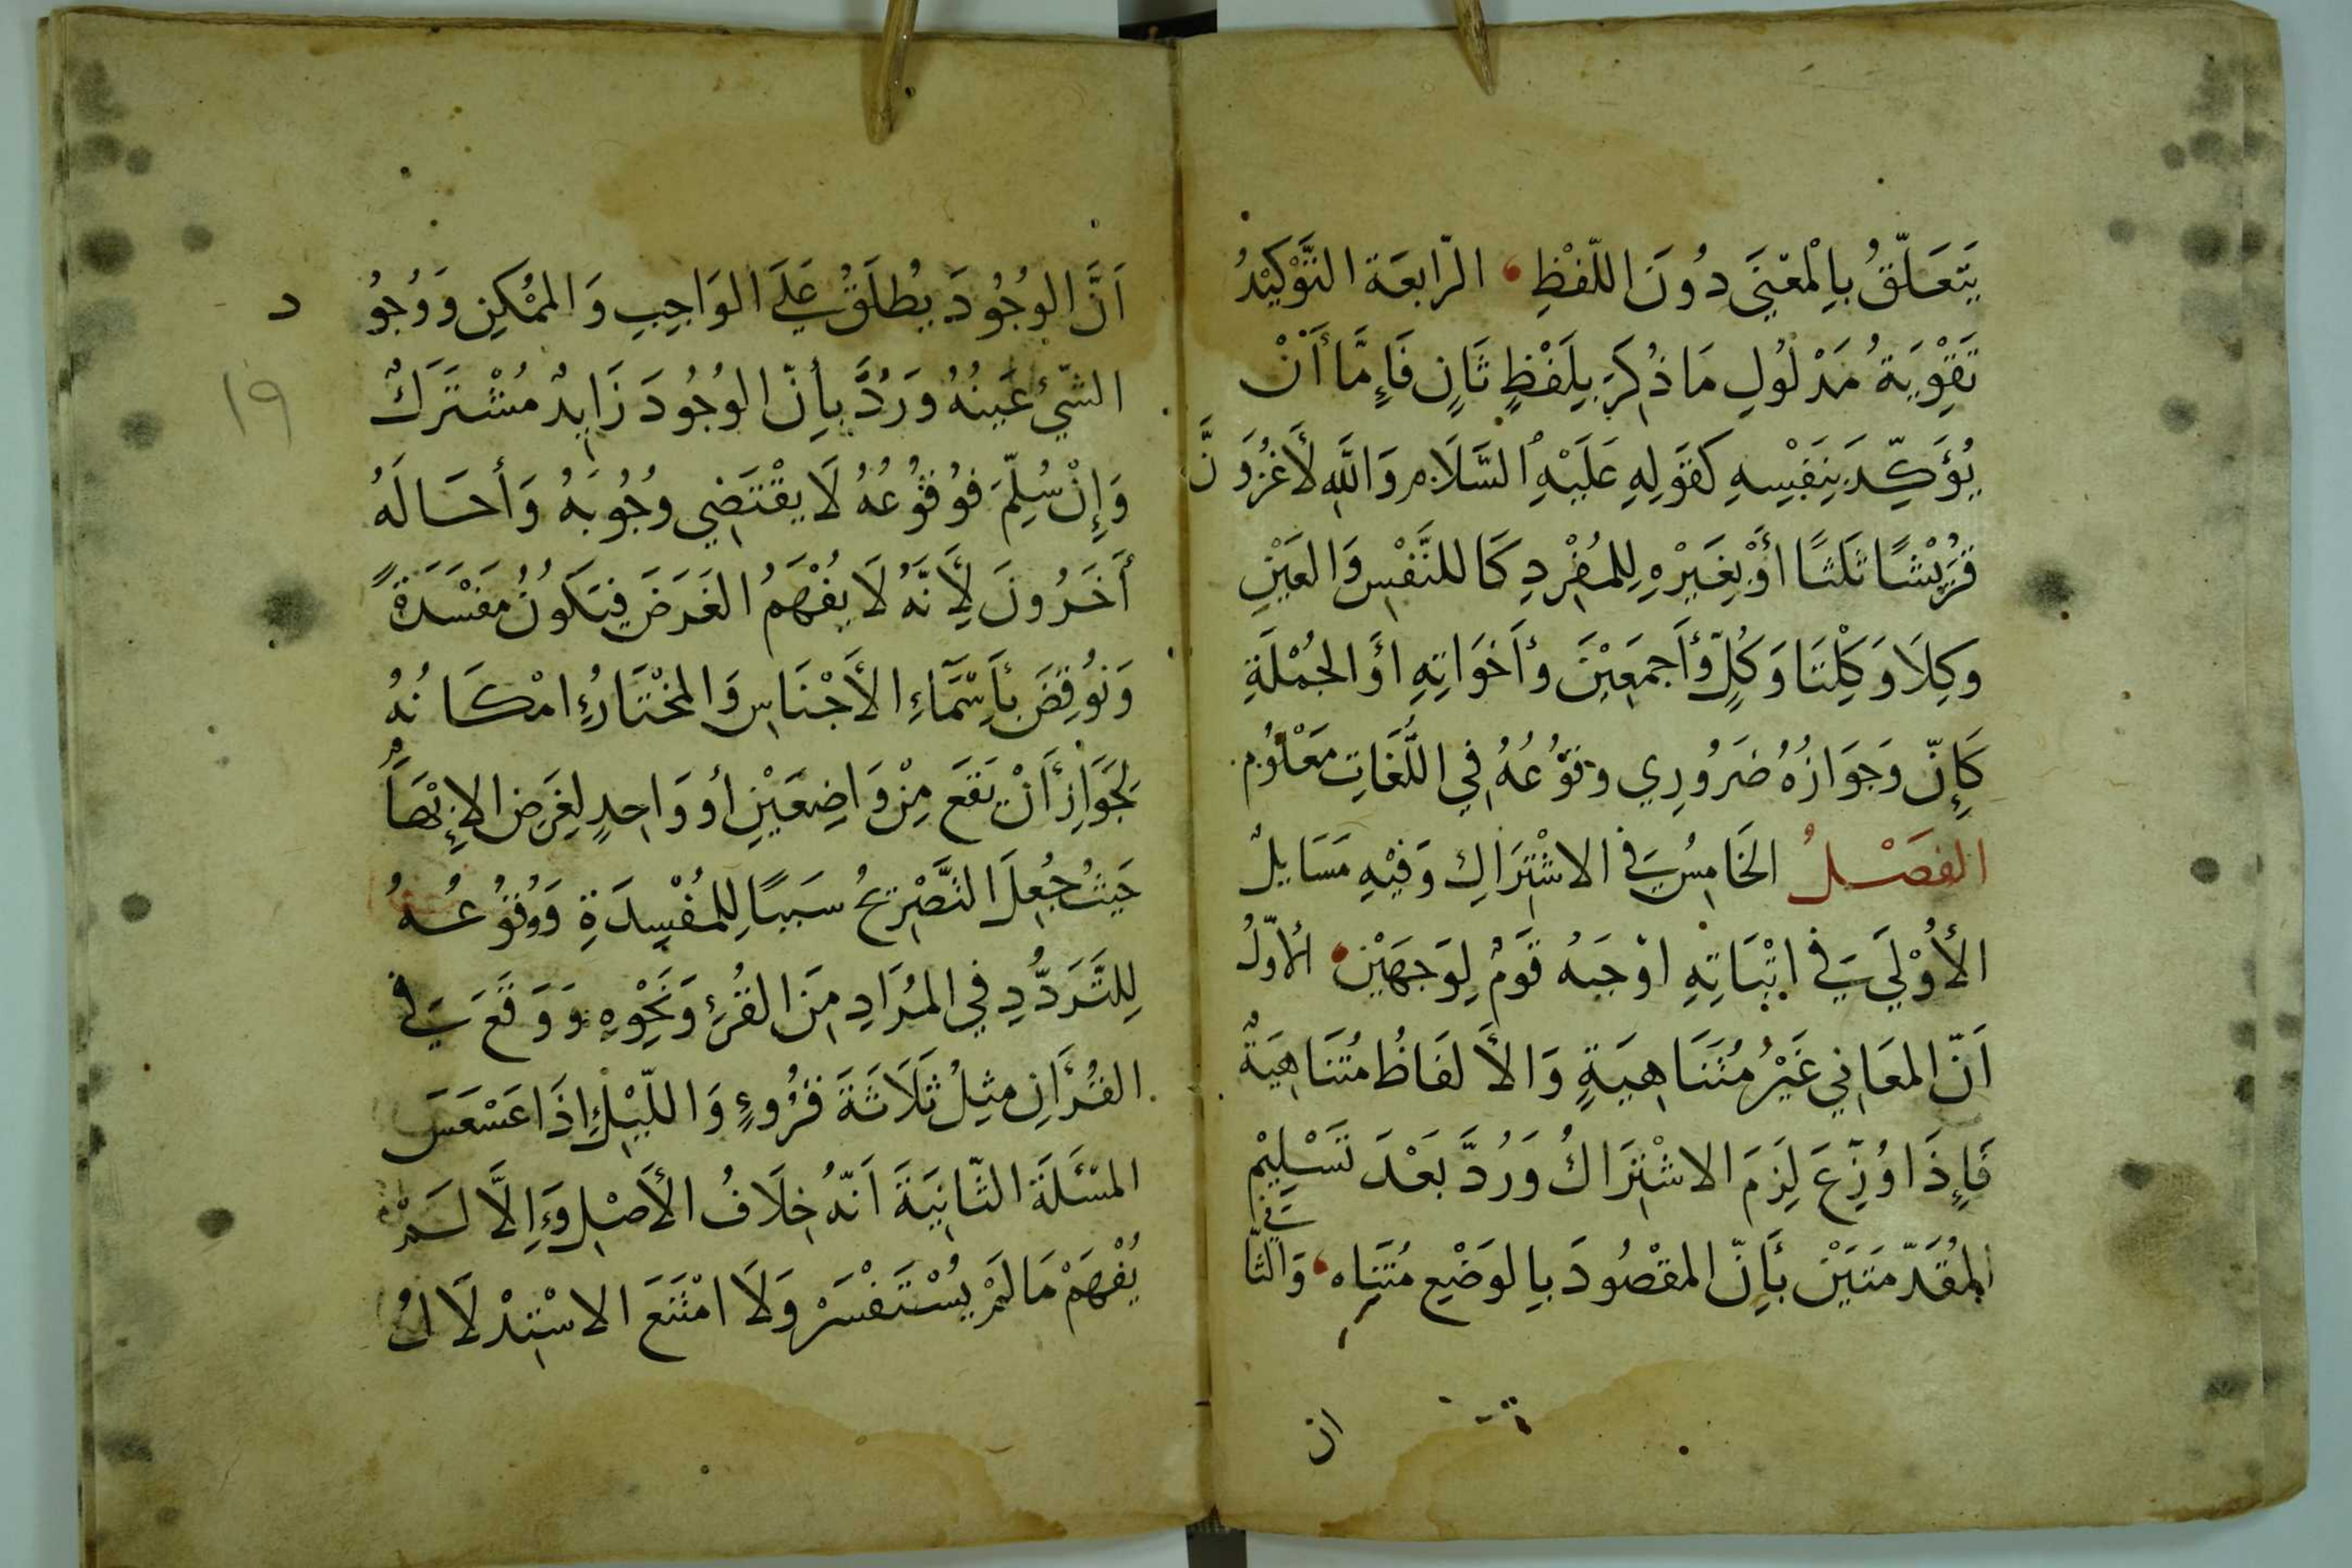 يَتَعَلَّقُ بِالْمَعْنَى دُونَ اللَّفْظِ الرَّابِعَة التَّوْكِيْدُ
تَقْوِيَةُ مَدْلُولِ مَا ذُكِرَ بِلَفْظٍ ثَانٍ فَإِمَّا أَنْ
يُؤَكِّدَ بِنَفْسِهِ كَقَوْلِهِ عَلَيْهِ السَّلَام وَاللَّهِ لَأَغْزُوَنَّ
قُرَيْشًا ثَلَثًا أَوْ بِغَيْرِهِ لِلمُفْرِدِ كَا للنَّفْسِ وَالعَيْنِ
وَكِلَا وَكِلْتَا وَكُلٍّ وَأَجمَعِيْنَ وَأَخَوَاتِهِ اَوِ الجُمْلَةِ
كَإِنّ وَجَوَازُهُ ضَرُورِي وَوُقُوْعُهُ فِي اللُّغَاتِ مَعْلُوْم
الفَصْلُ الخَامِسُ فِي الاشْتِرَاكِ وَفِيْهِ مَسَايِلُ
الأُوْلَى فِي اثْبَاتِهِ اوْجَبَهُ قَوْمٌ لِوَجهَيْنِ الأوّلُ
اَنّ المعَانِي غَيْرُ مُتَنَاهِيَةٍ وَالأَلفَاظُ مُتَنَاهِيَةٌ
فَإِذَا وُزِّعَ لَزِمَ الاشْتِرَاكُ وَرُدَّ بَعْدَ تَسْلِيْمِ
المُقَدّمَتَيْنِ بِأَنّ المقْصُودَ بِالوَضْعِ مُتَنَاهٍ وَالثَّانِي
ان
اَنَّ الوُجُودَ يُطْلَقُ عَلَى الوَاجِبِ وَالمُمْكِنِ وَوُجُو د
الشّيْءِ عَينُهُ وَرُدَّ بِأَنّ الوُجُودَ زَايِدٌ مُشْتَرَكٌ
١٩
وَإِنْ سُلِّمَ فَوُقُوْعُهُ لَا يَقْتَضِي وُجُوبَهُ وَأَحَالَهُ
أَخَرُونَ لِأَنَّهُ لَا يُفْهِمُ الغَرَضَ فَيَكُونُ مَفْسَدَةً
وَنُوقِضَ بِأَسْمَآءِ الأَجْنَاسِ وَالمُخْتَارُ امْكَانُهُ
لِجَوَازِ أَنْ يَقَعَ مِنْ وَاضِعَيْنِ أو وَاحِدٍ لِغَرَضِ الإِبْهَامِ
حَيْثُ جُعِلَ التَّصْرِيحُ سَبَبًا لِلمُفْسِدَةِ وَوُقُوْعُهُ
لِلتَّرَدُّدِ فِي المُرَادِ مِنَ القُرْءِ وَنَحْوِهِ وَوَقَعَ فِي
القُرْأَنِ مِثلُ ثَلَاثَةَ قُرُوءٍ وَاللّيْلِ إِذَا عَسْعَسَ
المسْئَلَة الثّانِيَةَ اَنّهُ خِلَافُ الأَصْلِ وَإِلَّا لَمْ
يُفْهَمْ مَا لَمْ يُسْتَفْسَرْ وَلَا امْتَنَعَ الاسْتِدْلَالُ